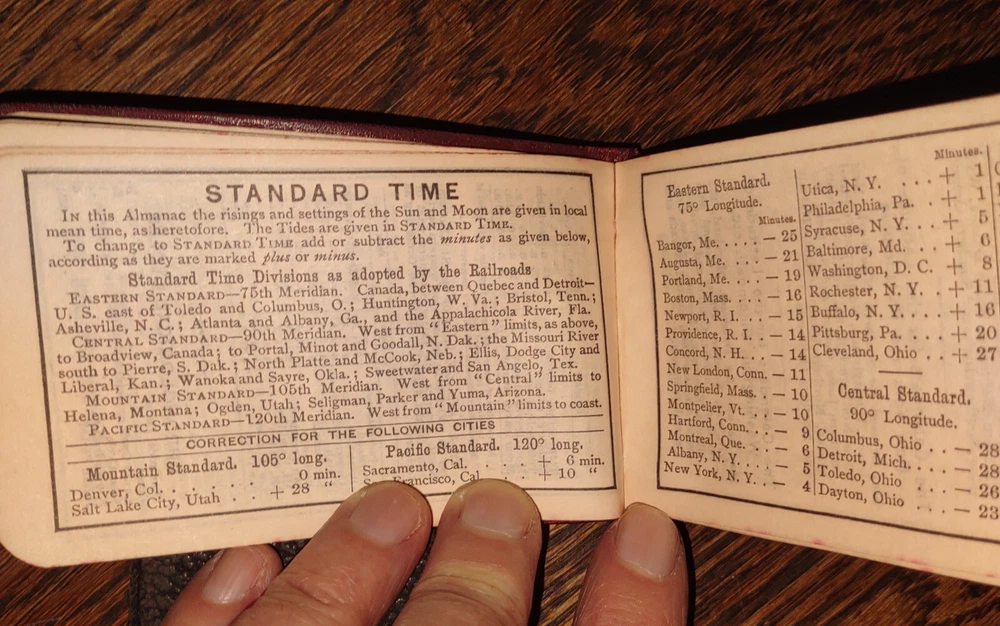 STANDARD TIME
In this Almanac the risings and settings of the Sun and Moon are given in local
mean time, as heretofore. The Tides are given in Standard Time.
To change to Standard Time add or subtract the minutes as given below,
according as they are marked plus or minus.
Standard Time Divisions as adopted by the Railroads
Eastern Standard—75th Meridian. Canada, between Quebec and Detroit—
U. S. east of Toledo and Columbus, O.; Huntington, W. Va.; Bristol, Tenn.;
Asheville, N. C.; Atlanta and Albany, Ga., and the Appalachicola River, Fla.
Central Standard—90th Meridian. West from "Eastern" limits, as above,
to Broadview, Canada; to Portal, Minot and Goodall, N. Dak.; the Missouri River
south to Pierre, S. Dak.; North Platte and McCook, Neb.; Ellis, Dodge City and
Liberal, Kan.; Wanoka and Sayre, Okla.; Sweetwater and San Angelo, Tex.
Mountain Standard—105th Meridian. West from "Central" limits to
Helena, Montana; Ogden, Utah; Seligman, Parker and Yuma, Arizona.
Pacific Standard—120th Meridian. West from "Mountain" limits to coast.
CORRECTION FOR THE FOLLOWING CITIES
Mountain Standard. 105° long.
Denver, Col. . . . . . 0 min.
Salt Lake City, Utah . . + 28 "
Pacific Standard. 120° long.
Sacramento, Cal. . . . . + 6 min.
Francisco, Cal . . + 10 "
Eastern Standard.
75° Longitude.
Minutes.
Bangor, Me. . . . . — 25
Augusta, Me. . . . — 21
Portland, Me. . . . — 19
Boston, Mass. . . . — 16
Newport, R. I. . . . — 15
Providence, R. I. . . — 14
Concord, N. H. . . . — 14
New London, Conn. — 11
Springfield, Mass. . — 10
Montpelier, Vt. . . — 10
Hartford, Conn. . . — 9
Montreal, Que. . . — 6
Albany, N. Y. . . . — 5
New York, N. Y. . . — 4
Minutes.
Utica, N. Y. . . . . + 1
Philadelphia, Pa. . . + 1
Syracuse, N. Y. . . . + 5
Baltimore, Md. . . . + 6
Washington, D. C. + 8
Rochester, N. Y. . + 11
Buffalo, N. Y. . . . + 16
Pittsburg, Pa. . . . + 20
Cleveland, Ohio . . + 27
Central Standard.
90° Longitude.
Columbus, Ohio . . . — 28
Detroit, Mich. . . . — 28
Toledo, Ohio . . . — 26
Dayton, Ohio . . . — 23